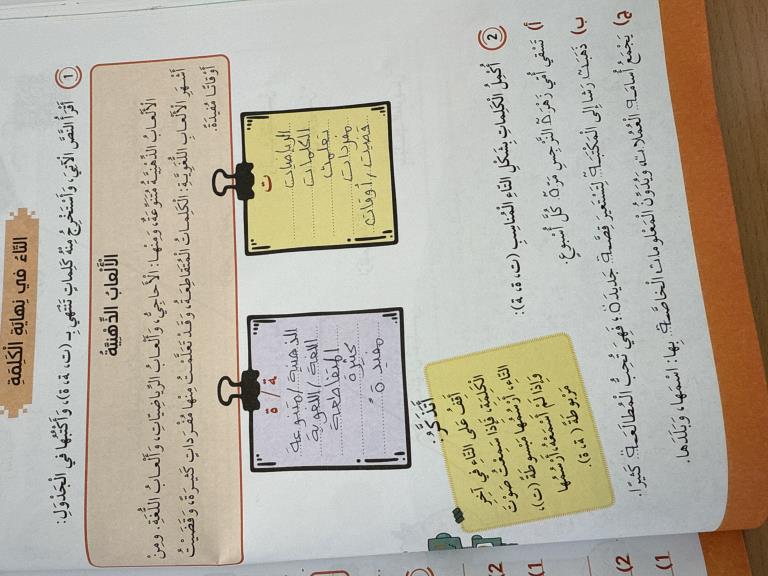 التَّاءُ فِي نِهايَةِ الْكَلِمَةِ
1 أَقْرَأُ النَّصَّ الْآتِيَ، وَأَسْتَخْرِجُ مِنْهُ كَلِماتٍ تَنْتَهي بِـ (ت، ة، ـة)، وَأَكْتُبُها في الْجَدْوَلِ:
الْأَلْعابُ الذِّهْنِيَّةُ
الْأَلْعابُ الذِّهْنِيَّةُ مُتَنَوِّعَةٌ، وَمِنْها: الْأَحاجِي، وَأَلْعابُ الرِّياضِيّاتِ، وَأَلْعابُ اللُّغَةِ. وَمِنْ
أَشْهَرِ الْأَلْعابِ اللُّغَوِيَّةِ: الْكَلِماتُ الْمُتَقاطِعَةُ، وَقَدْ تَعَلَّمْتُ مِنْها مُفْرَداتٍ كَثيرَةً، وَقَضَيْتُ
أَوْقاتًا مُفيدَةً.
ت
الرياضيات
الكلمات
تعلمت
مفردات
قضيت / أوقات
ة / ـة
الذهنية / متنوعة
اللغة / اللغوية
المتقاطعة
كثيرة
مفيدة
أَتَذَكَّرُ:
أَقِفُ عَلى التّاءِ في آخِرِ
الْكَلِمَةِ، فَإِذا سَمِعْتُ صَوْتَ
التّاءِ، أَرْسُمُها مَبْسوطَةً (ت)،
وَإِذا لَمْ أَسْمَعْهُ، أَرْسُمُها
مَرْبوطَةً (ـة، ة).
2 أُكْمِلُ الْكَلِماتِ بِشَكْلِ التّاءِ الْمُناسِبِ (ت، ة، ـة):
أ) تَسْقي أُمّي زَهْرَة النَّرْجِسِ مَرَّة كُلَّ أُسْبوعٍ.
ب) ذَهَبَت رَشا إِلى الْمَكْتَبَة لِتَسْتَعيرَ قِصَّة جَديدَة؛ فَهِيَ تُحِبُّ الْمُطالَعَة كَثيرًا.
ج) يَجْمَعُ أُسامَة الْعُمُلات، وَيُدَوِّنُ الْمَعْلوماتِ الْخاصَّة بِها: اسْمَها، وَبَلَدَها.
2)
1)
2)
1)